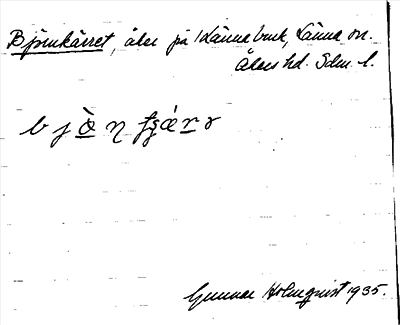 Björnkärret, åker på Länna bruk, Länna sn.
Åkers hd. Sdm. l.
Gunnar Holmquist 1935.